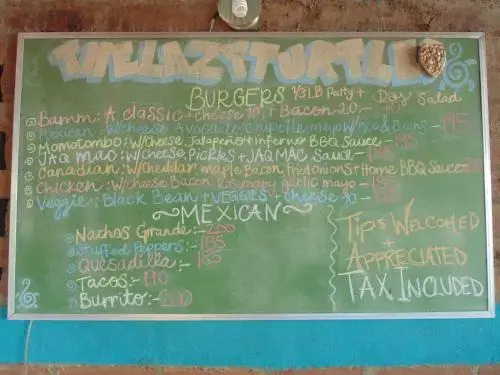 THE LAZY TURTLE
BURGERS 1/3 LB Patty + Day Salad
Bamm: A classic + cheese 10, + Bacon 20:-
Mexican: W/cheese Avocato, Chipotle mayo W/rice & Beans - 195
Momotombo: W/cheese, Jalapeño + inferno BBQ Sauce - 195
JAQ mac: W/cheese, Pickles + JAQMAC Sauce -
Canadian: W/cheddar maple Bacon, Fried onions + Home BBQ Sauce
Chicken: W/cheese Bacon, Rosemary garlic mayo -
Veggie: Black Bean + VEGGIES + cheese 10 -
~MEXICAN~
Nachos Grande:- 200
Stuffed Peppers:- 155
Quesadilla:- 155
Tacos:- 140
Burrito:- 200
Tips Welcomed
+
Appreciated
TAX INCLUDED